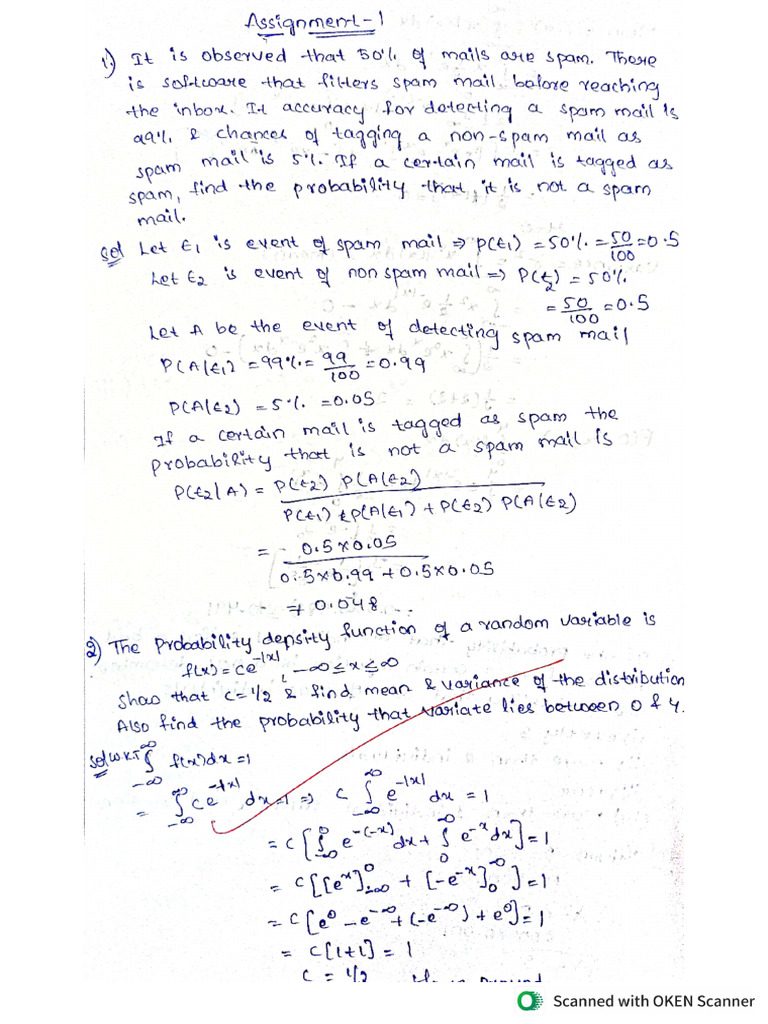 Assignment-1
1) It is observed that 50% of mails are spam. There
is software that filters spam mail before reaching
the inbox. It accuracy for detecting a spam mail is
99% & chances of tagging a non-spam mail as
spam mail is 5%. If a certain mail is tagged as
spam, find the probability that it is not a spam
mail.
Sol Let E₁ is event of spam mail ⇒ P(E₁) = 50% = 50/100 = 0.5
Let E₂ is event of non spam mail ⇒ P(E₂) = 50%
= 50/100 = 0.5
Let A be the event of detecting spam mail
P(A|E₁) = 99% = 99/100 = 0.99
P(A|E₂) = 5% = 0.05
If a certain mail is tagged as spam the
probability that is not a spam mail is
P(E₂|A) = P(E₂) P(A|E₂)
P(E₁) P(A|E₁) + P(E₂) P(A|E₂)
= 0.5×0.05
0.5×0.99 + 0.5×0.05
= 0.048
2) The Probability density function of a random variable is
f(x) = ce^-|x|, -∞ ≤ x ≤ ∞
Show that c = 1/2 & find mean & variance of the distribution
Also find the probability that variate lies between 0 & 4.
Sol WKT ∫_-∞^∞ f(x)dx = 1
= ∫_-∞^∞ ce^-|x| dx = 1 ⇒ c ∫_-∞^∞ e^-|x| dx = 1
= c[∫_-∞^0 e^-(-x) dx + ∫_0^∞ e^-x dx] = 1
= c[[e^x]_-∞^0 + [-e^-x]_0^∞] = 1
= c[e^0 - e^-∞ + (-e^-∞) + e^0] = 1
= c[1+1] = 1
c = 1/2
Scanned with OKEN Scanner